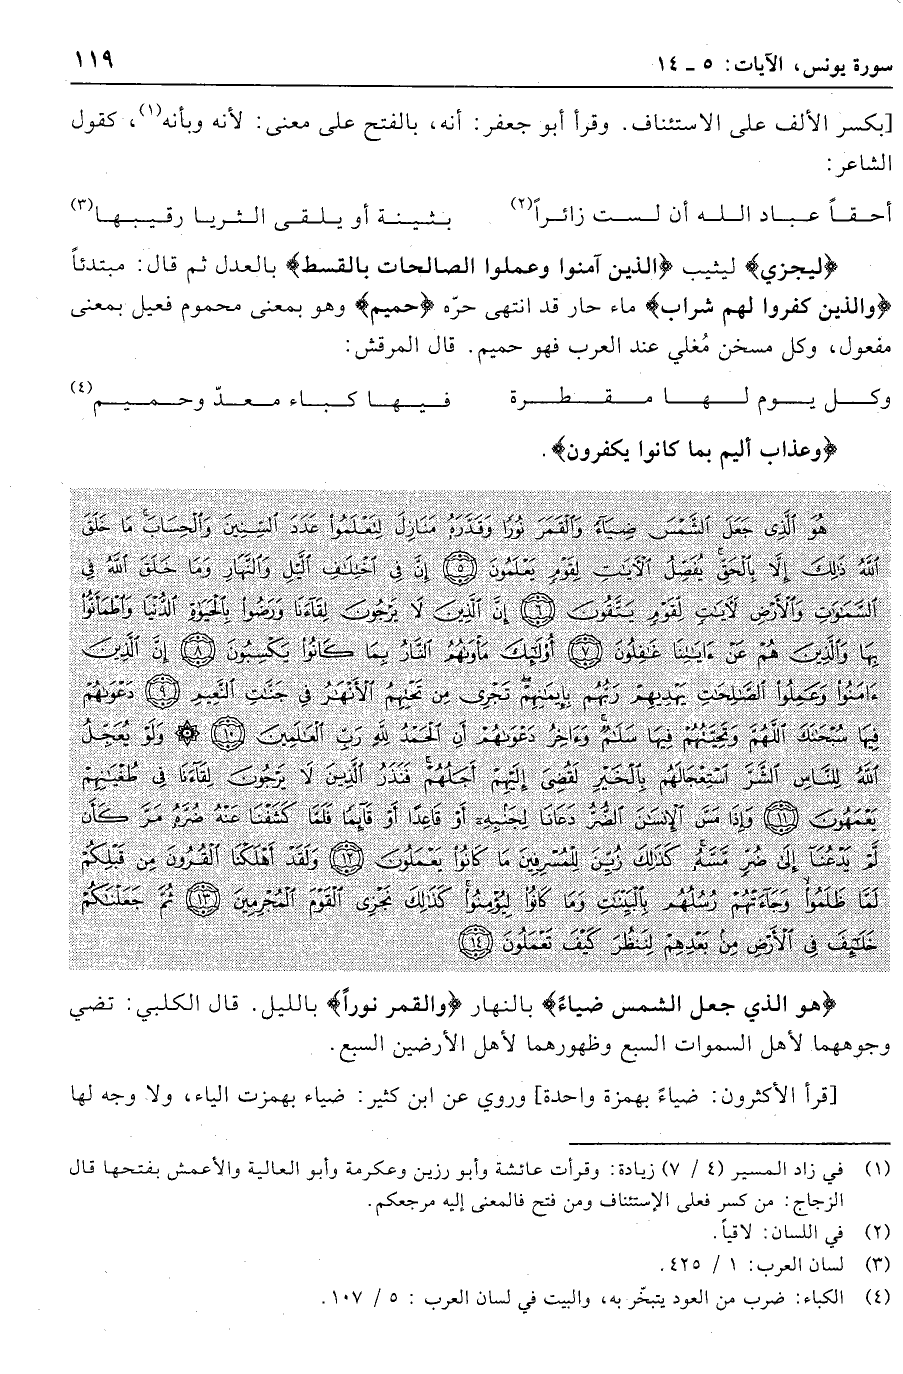 سورة يونس، الآيات: ٥ ـ ١٤ ١١٩
[بكسر الألف على الاستئناف. وقرأ أبو جعفر: أنه، بالفتح على معنى: لأنه وبأنه(١)، كقول
الشاعر:
أحقاً عباد الله أن لست زائراً(٢) بثينة أو يلقى الثريا رقيبها(٣)
﴿ليجزي﴾ ليثيب ﴿الذين آمنوا وعملوا الصالحات بالقسط﴾ بالعدل ثم قال: مبتدئاً
﴿والذين كفروا لهم شراب﴾ ماء حار قد انتهى حرّه ﴿حميم﴾ وهو بمعنى محموم فعيل بمعنى
مفعول، وكل مسخن مُغلي عند العرب فهو حميم. قال المرقش:
وكل يوم لها مقطرة فيها كباء معدّ وحميم(٤)
﴿وعذاب أليم بما كانوا يكفرون﴾.
هُوَ ٱلَّذِى جَعَلَ ٱلشَّمْسَ ضِيَآءً وَٱلْقَمَرَ نُورًا وَقَدَّرَهُۥ مَنَازِلَ لِتَعْلَمُوا۟ عَدَدَ ٱلسِّنِينَ وَٱلْحِسَابَ ۚ مَا خَلَقَ
ٱللَّهُ ذَٰلِكَ إِلَّا بِٱلْحَقِّ ۚ يُفَصِّلُ ٱلْـَٔايَٰتِ لِقَوْمٍ يَعْلَمُونَ ٥ إِنَّ فِى ٱخْتِلَٰفِ ٱلَّيْلِ وَٱلنَّهَارِ وَمَا خَلَقَ ٱللَّهُ فِى
ٱلسَّمَٰوَٰتِ وَٱلْأَرْضِ لَـَٔايَٰتٍ لِّقَوْمٍ يَتَّقُونَ ٦ إِنَّ ٱلَّذِينَ لَا يَرْجُونَ لِقَآءَنَا وَرَضُوا۟ بِٱلْحَيَوٰةِ ٱلدُّنْيَا وَٱطْمَأَنُّوا۟
بِهَا وَٱلَّذِينَ هُمْ عَنْ ءَايَٰتِنَا غَٰفِلُونَ ٧ أُو۟لَٰٓئِكَ مَأْوَىٰهُمُ ٱلنَّارُ بِمَا كَانُوا۟ يَكْسِبُونَ ٨ إِنَّ ٱلَّذِينَ
ءَامَنُوا۟ وَعَمِلُوا۟ ٱلصَّٰلِحَٰتِ يَهْدِيهِمْ رَبُّهُم بِإِيمَٰنِهِمْ ۖ تَجْرِى مِن تَحْتِهِمُ ٱلْأَنْهَٰرُ فِى جَنَّٰتِ ٱلنَّعِيمِ ٩ دَعْوَىٰهُمْ
فِيهَا سُبْحَٰنَكَ ٱللَّهُمَّ وَتَحِيَّتُهُمْ فِيهَا سَلَٰمٌ ۚ وَءَاخِرُ دَعْوَىٰهُمْ أَنِ ٱلْحَمْدُ لِلَّهِ رَبِّ ٱلْعَٰلَمِينَ ١٠ ۞ وَلَوْ يُعَجِّلُ
ٱللَّهُ لِلنَّاسِ ٱلشَّرَّ ٱسْتِعْجَالَهُم بِٱلْخَيْرِ لَقُضِىَ إِلَيْهِمْ أَجَلُهُمْ ۖ فَنَذَرُ ٱلَّذِينَ لَا يَرْجُونَ لِقَآءَنَا فِى طُغْيَٰنِهِمْ
يَعْمَهُونَ ١١ وَإِذَا مَسَّ ٱلْإِنسَٰنَ ٱلضُّرُّ دَعَانَا لِجَنۢبِهِۦٓ أَوْ قَاعِدًا أَوْ قَآئِمًا فَلَمَّا كَشَفْنَا عَنْهُ ضُرَّهُۥ مَرَّ كَأَن
لَّمْ يَدْعُنَآ إِلَىٰ ضُرٍّ مَّسَّهُۥ ۚ كَذَٰلِكَ زُيِّنَ لِلْمُسْرِفِينَ مَا كَانُوا۟ يَعْمَلُونَ ١٢ وَلَقَدْ أَهْلَكْنَا ٱلْقُرُونَ مِن قَبْلِكُمْ
لَمَّا ظَلَمُوا۟ ۙ وَجَآءَتْهُمْ رُسُلُهُم بِٱلْبَيِّنَٰتِ وَمَا كَانُوا۟ لِيُؤْمِنُوا۟ ۚ كَذَٰلِكَ نَجْزِى ٱلْقَوْمَ ٱلْمُجْرِمِينَ ١٣ ثُمَّ جَعَلْنَٰكُمْ
خَلَٰٓئِفَ فِى ٱلْأَرْضِ مِنۢ بَعْدِهِمْ لِنَنظُرَ كَيْفَ تَعْمَلُونَ ١٤
﴿هو الذي جعل الشمس ضياءً﴾ بالنهار ﴿والقمر نوراً﴾ بالليل. قال الكلبي: تضي
وجوههما لأهل السموات السبع وظهورهما لأهل الأرضين السبع.
[قرأ الأكثرون: ضياءً بهمزة واحدة] وروي عن ابن كثير: ضياء بهمزت الياء، ولا وجه لها
(١) في زاد المسير (٤ / ٧) زيادة: وقرأت عائشة وأبو رزين وعكرمة وأبو العالية والأعمش بفتحها قال
الزجاج: من كسر فعلى الإستئناف ومن فتح فالمعنى إليه مرجعكم.
(٢) في اللسان: لاقياً.
(٣) لسان العرب: ١ / ٤٢٥.
(٤) الكباء: ضرب من العود يتبخّر به، والبيت في لسان العرب : ٥ / ١٠٧.